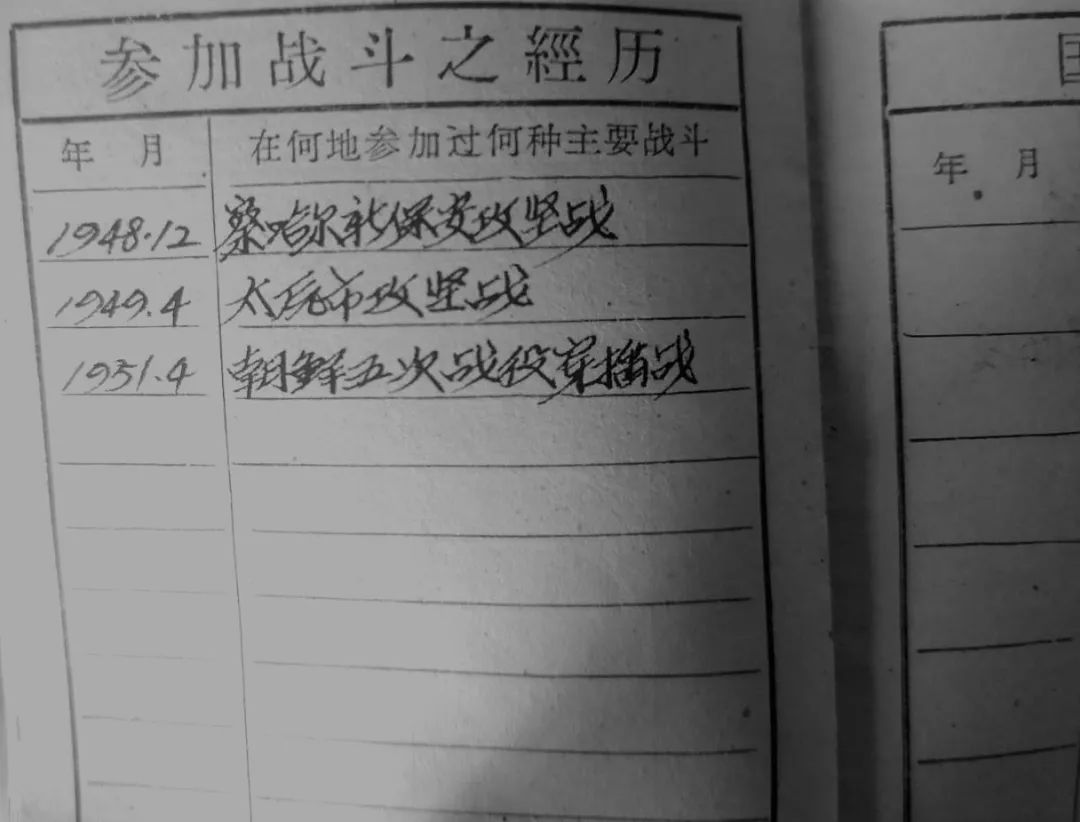 参加战斗之經历
年 月 在何地参加过何种主要战斗
1948.12 察哈尔新保安攻坚战
1949.4 太原市攻坚战
1951.4 朝鲜五次战役穿插战
年 月